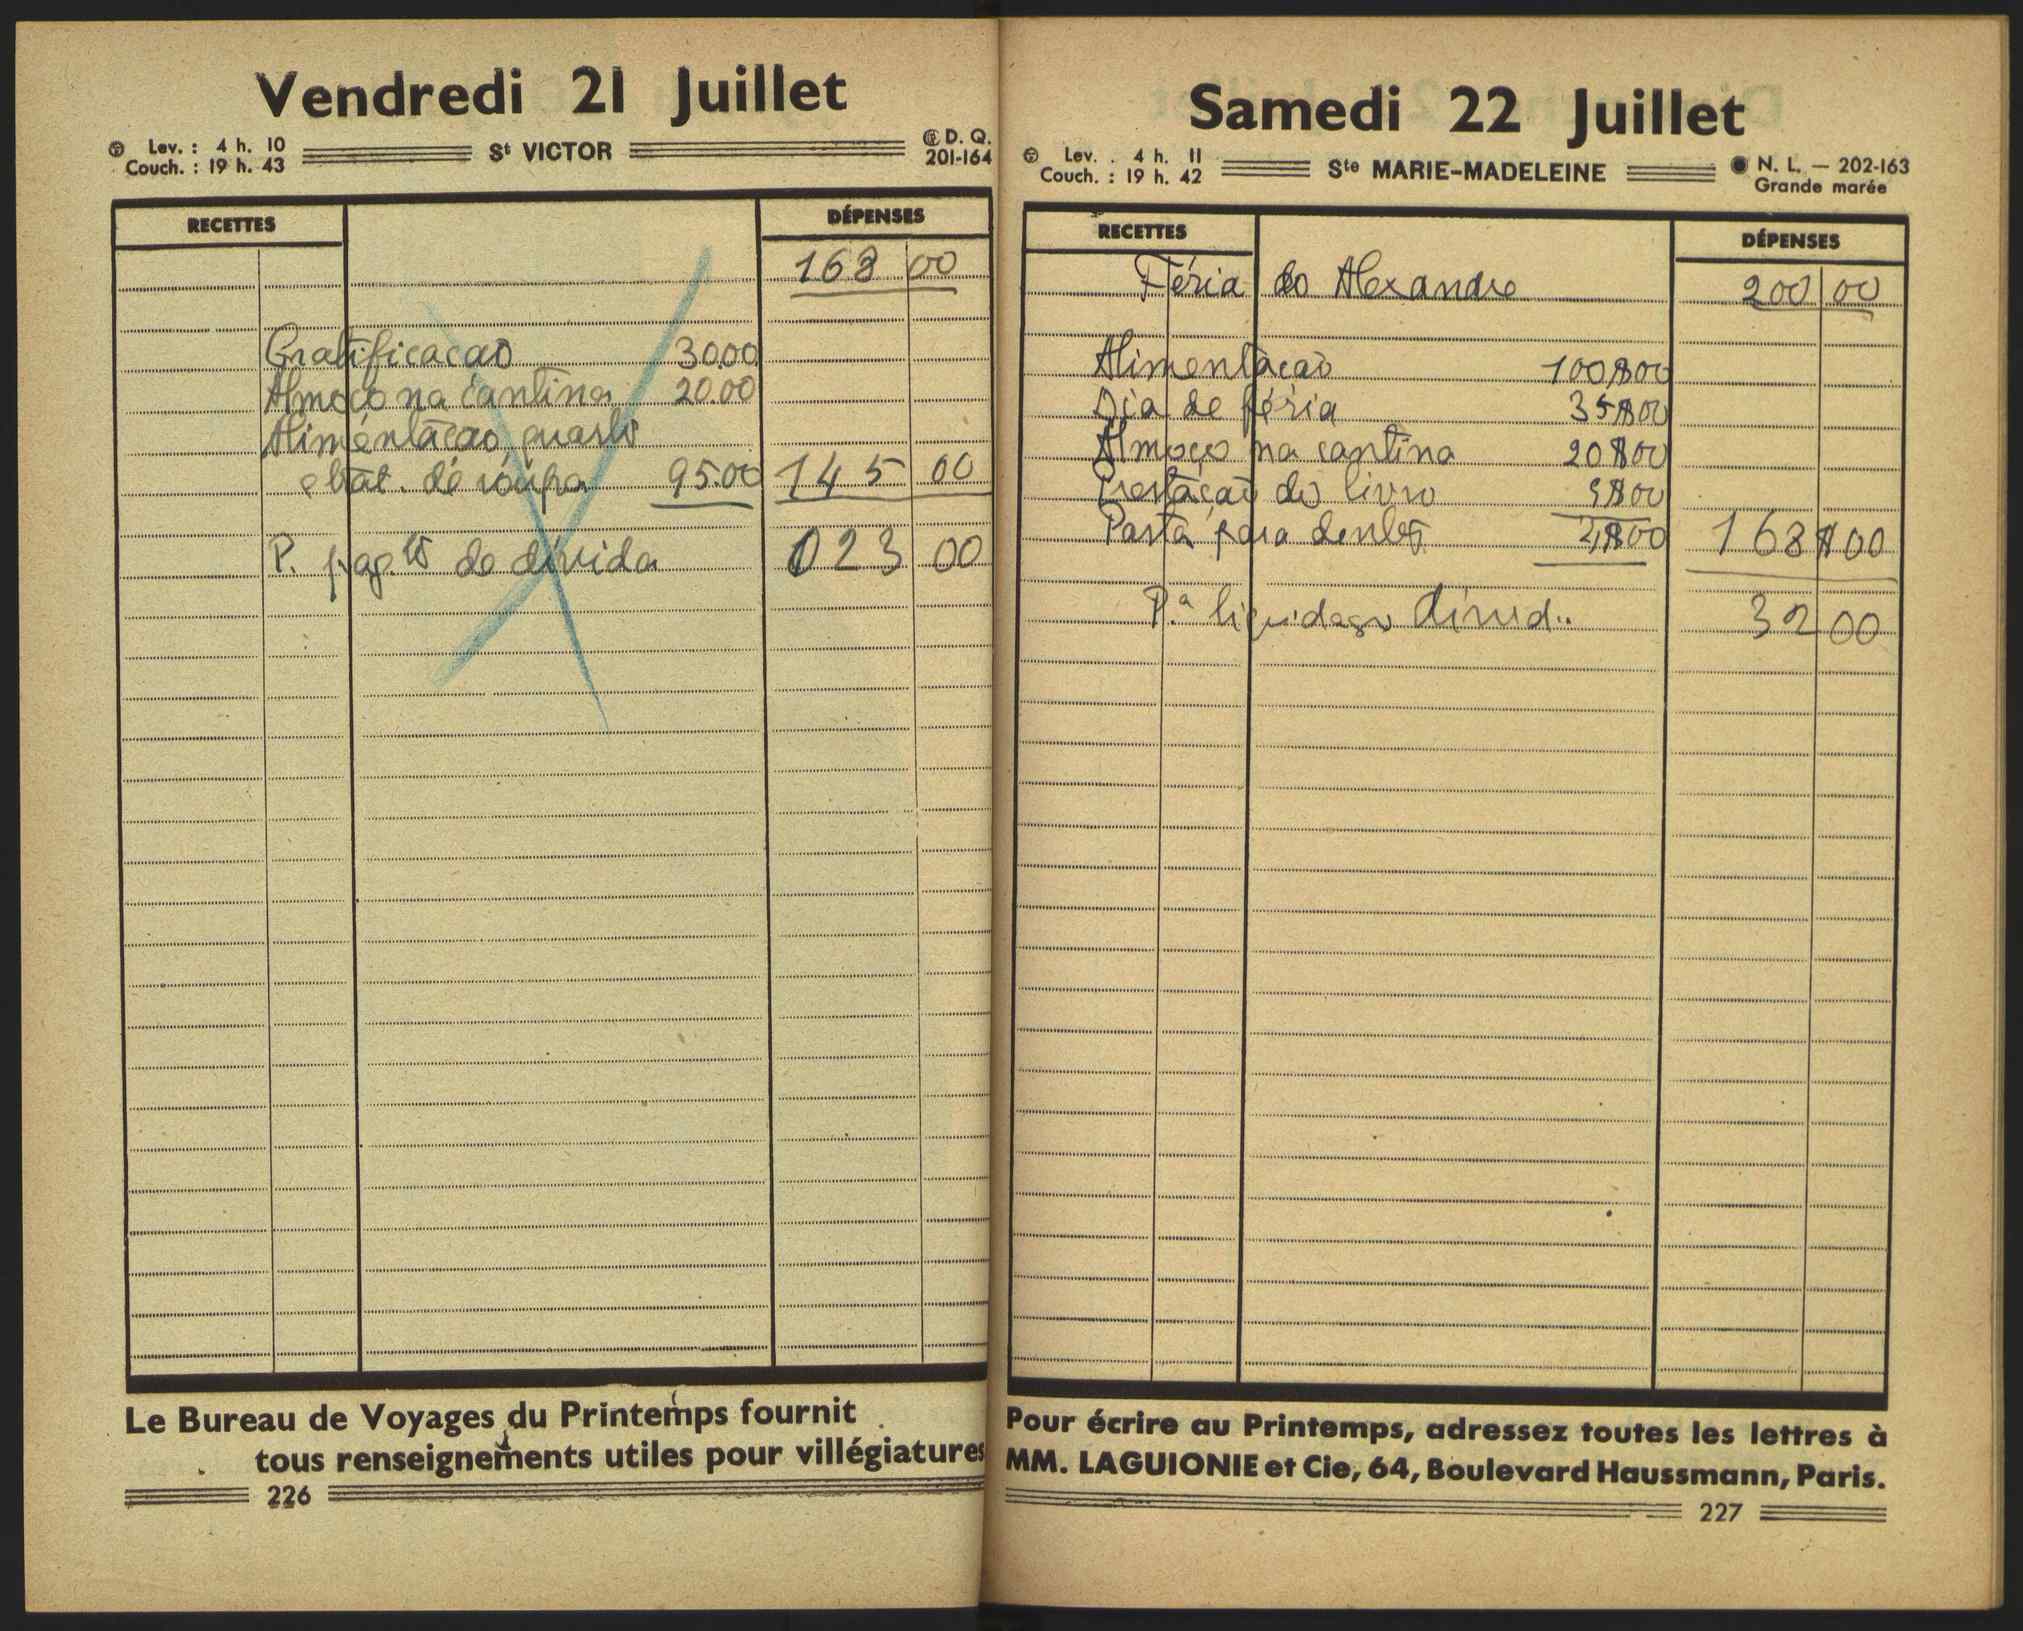 Vendredi 21 Juillet
Lev. : 4 h. 10
Couch. : 19 h. 43
St VICTOR
D. Q.
201-164
RECETTES
DÉPENSES
168 00
Gratificação 30.00
Almoço na cantina 20.00
Alimentação, quarto
e bat. de roupa 95.00 145 00
P. pag.to de divida 023 00
Le Bureau de Voyages du Printemps fournit
tous renseignements utiles pour villégiatures
226
Samedi 22 Juillet
Lev. . 4 h. 11
Couch. : 19 h. 42
Ste MARIE-MADELEINE
N. L. — 202-163
Grande marée
RECETTES
DÉPENSES
Féria do Alexandre 200 00
Alimentação 100$00
Dia de féria 35$00
Almoço na cantina 20$00
Prestação do livro 9$00
Pasta para dentes 4$00 168$00
P.a liquidação divid.. 32 00
Pour écrire au Printemps, adressez toutes les lettres à
MM. LAGUIONIE et Cie, 64, Boulevard Haussmann, Paris.
227